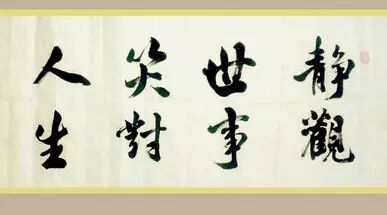 静觀
世事
笑對
人生